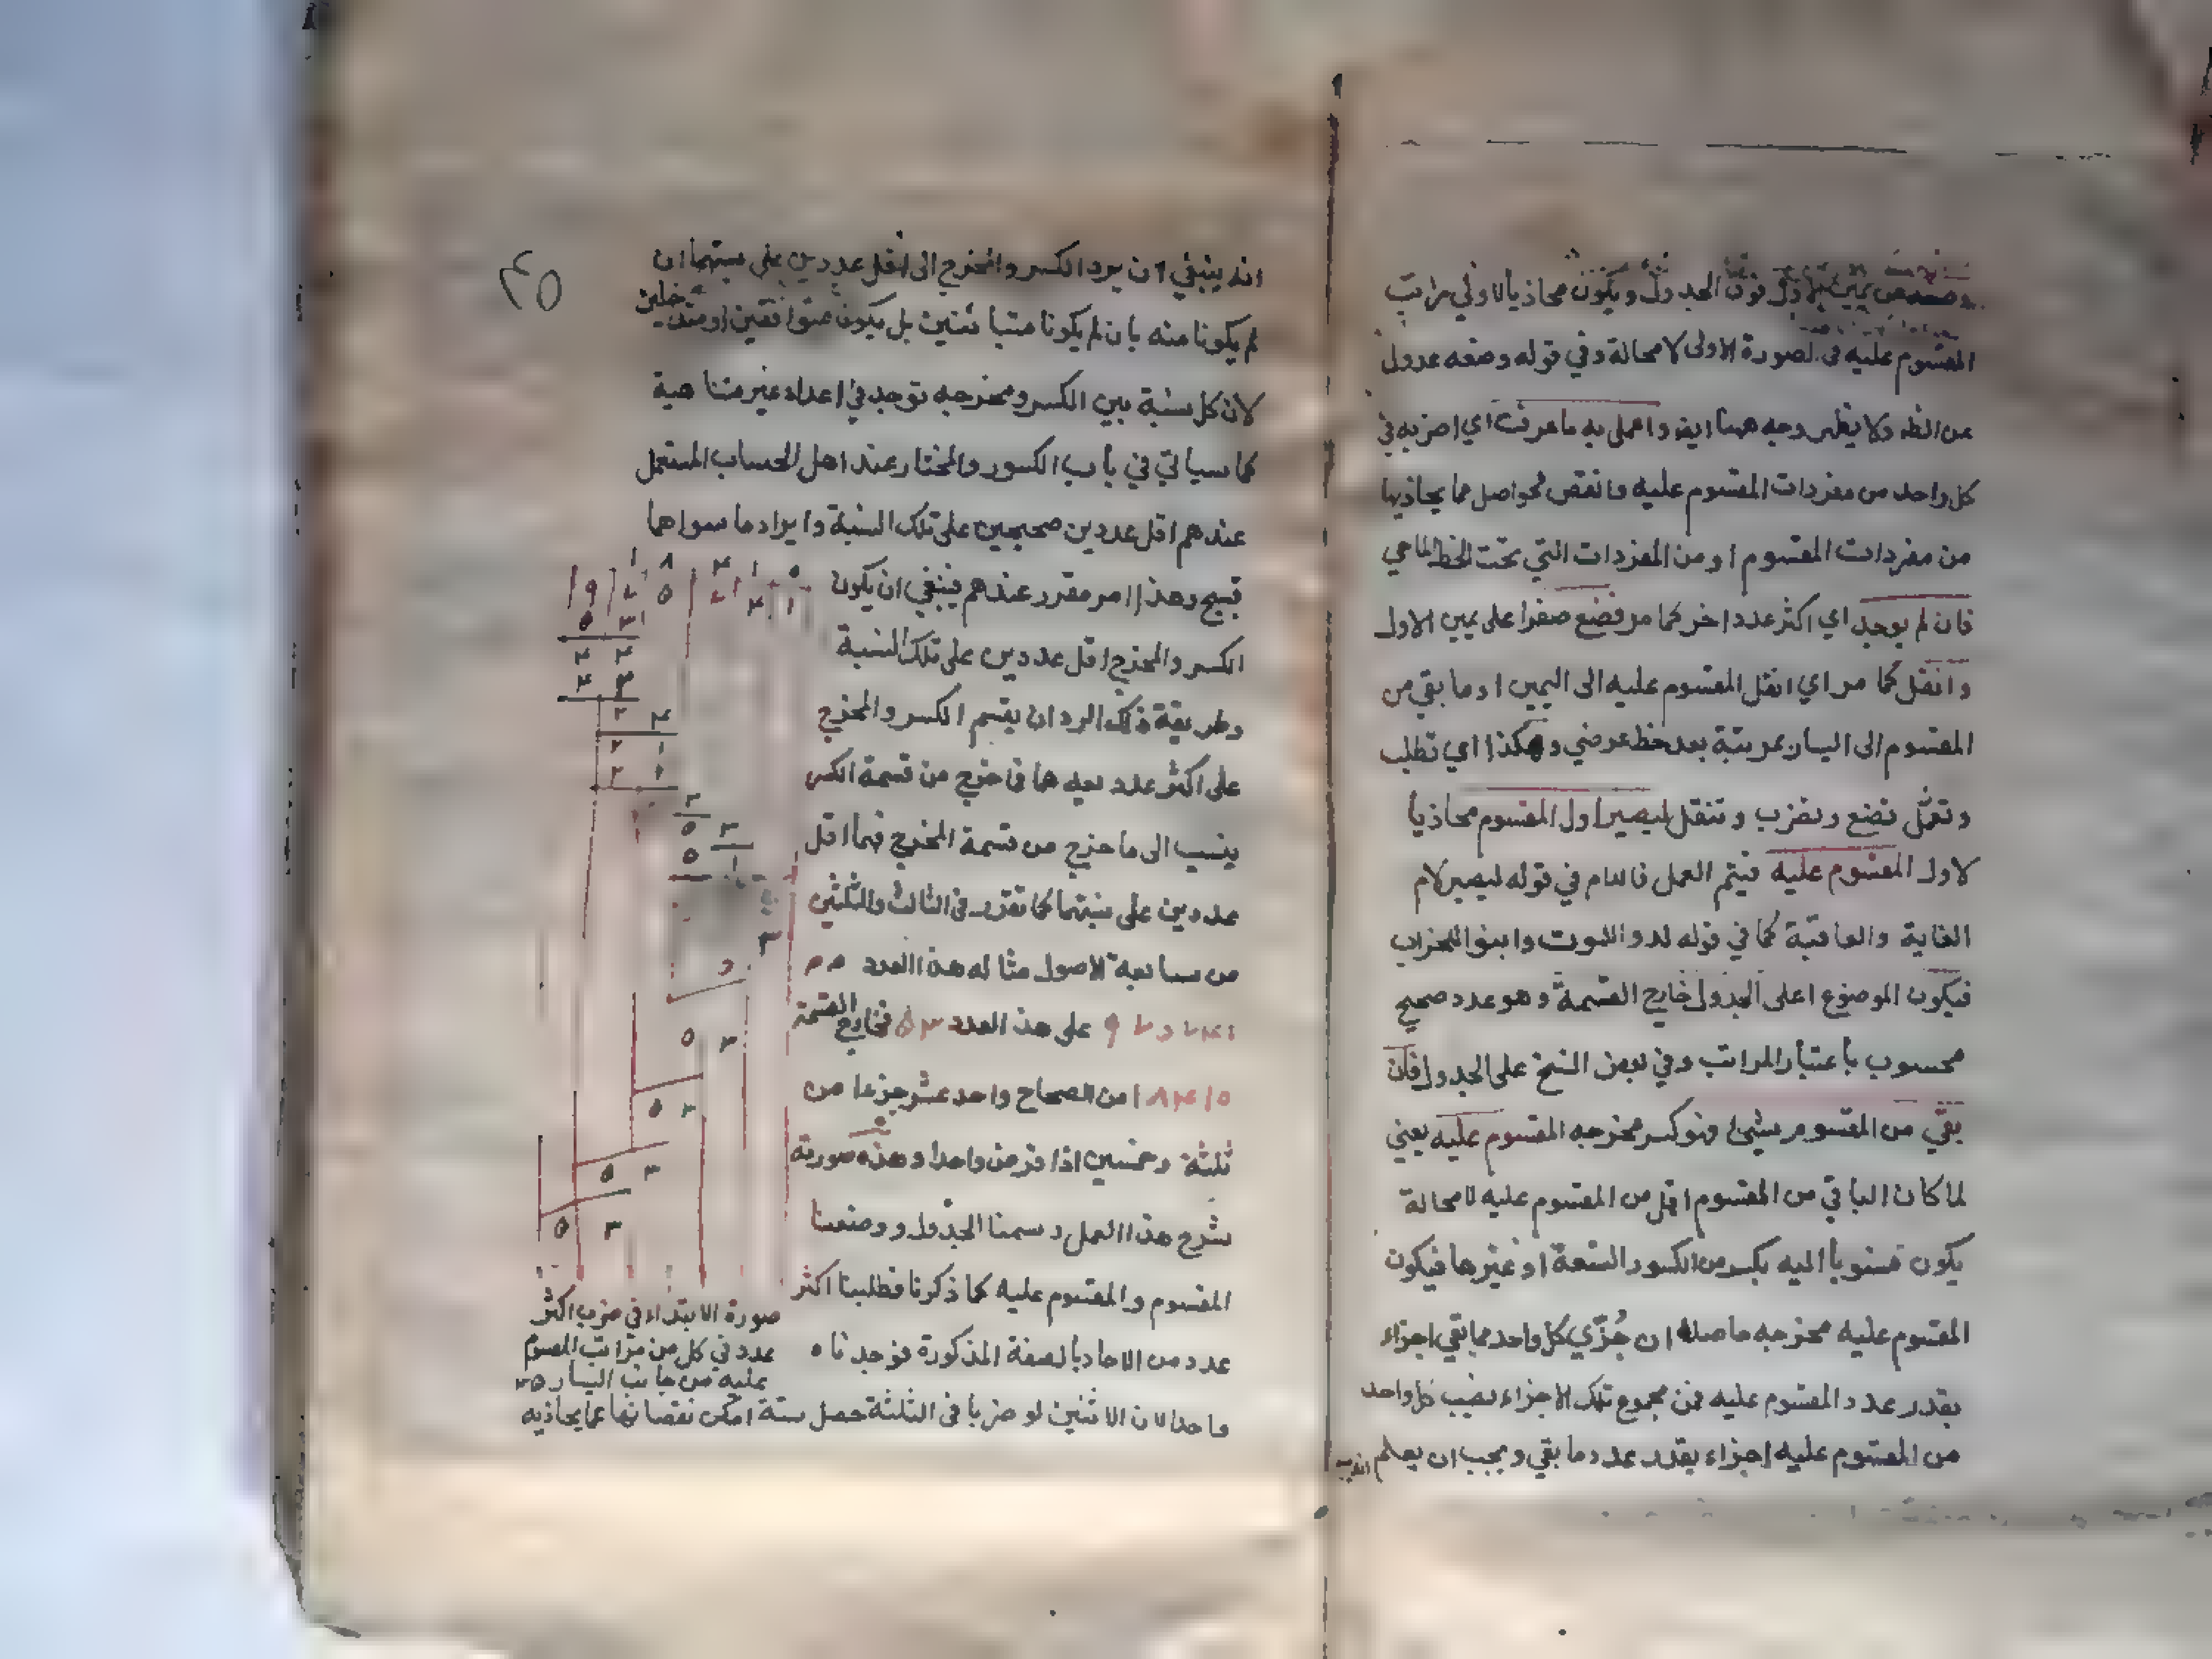 وضعه عن يمين الاول فوق الجدول ويكون محاذيا لاولي مراتب
المقسوم عليه في الصورة الاولى لا محالة وفي قوله وضعه عدول
عن الظ ولا يظهر وجه ههنا ايض واعمل به ما عرفت اي اضربه في
كل واحد من مفردات المقسوم عليه وانقص الحواصل مما يحاذيها
من مفردات المقسوم او من المفردات التي تحت الخط الماحي
فان لم يوجد اي اكثر عدد اخر كما مر فضع صفرا على يمين الاول
وانقل كما مر اي انقل المقسوم عليه الى اليمين او ما بقي من
المقسوم الى اليسار بمرتبة بعد خط عرضي وهكذا اي تطلب
وتعمل تضع وتضرب وتنقل ليصير اول المقسوم محاذيا
لاول المقسوم عليه فيتم العمل فاللام في قوله ليصير لام
الغاية والعاقبة كما في قوله لدوا للموت وابنوا للخراب
فيكون الموضوع اعلى الجدول خارج القسمة وهو عدد صحيح
محسوب باعتبار المراتب وفي بعض النسخ على الجدول فان
بقي من المقسوم شئ فهو كسر مخرجه المقسوم عليه يعني
لما كان الباقي من المقسوم اقل من المقسوم عليه لا محالة
يكون منسوبا اليه بكسر من الكسور التسعة او غيرها فيكون
المقسوم عليه مخرجه حاصله ان جُزّي كل واحد مما بقي اجزاء
بقدر عدد المقسوم عليه فمن مجموع تلك الاجزاء نصيب كل واحد
من المقسوم عليه اجزاء بقدر عدد ما بقي ويجب ان يعلم
انه ينبغي ان يرد الكسر والمخرج الى اقل عددين على نسبتهما ان
لم يكونا منه بان لم يكونا متباينين بل يكونا متوافقين او متداخلين
لان كل نسبة بين الكسر ومخرجه توجد في اعداد غير متناهية
كما سياتي في باب الكسور والمختار عند اهل الحساب المستعمل
عندهم اقل عددين صحيحين على تلك النسبة وايراد ما سواهما
قبيح وهذا امر مقرر عندهم ينبغي ان يكون
الكسر والمخرج اقل عددين على تلك النسبة
وطريقة ذلك الرد ان يقسم الكسر والمخرج
على اكثر عدد يعدهما فما خرج من قسمة الكسر
ينسب الى ما خرج من قسمة المخرج فهما اقل
عددين على نسبتهما كما تقرر في الثالث والثلثين
من سابعة الاصول مثاله هذا العدد
على هذا العدد ٥٣ فخارج القسمة
١٨٤١٥ من الصحاح واحد عشر جزءا من
ثلثة وخمسين اذا فرض واحدا وهذه صورته
شرح هذا العمل رسمنا الجدول ووضعنا
المقسوم والمقسوم عليه كما ذكرنا فطلبنا اكثر
عدد من الاحاد بالصفة المذكورة فوجدناه
واحدا لان الاثنين لو ضربا في الثلثة حصل ستة امكن نقصانها عما يحاذيه
صورة الابتداء في ضرب اكثر
عدد في كل من مراتب المقسوم
عليه من جانب اليسار